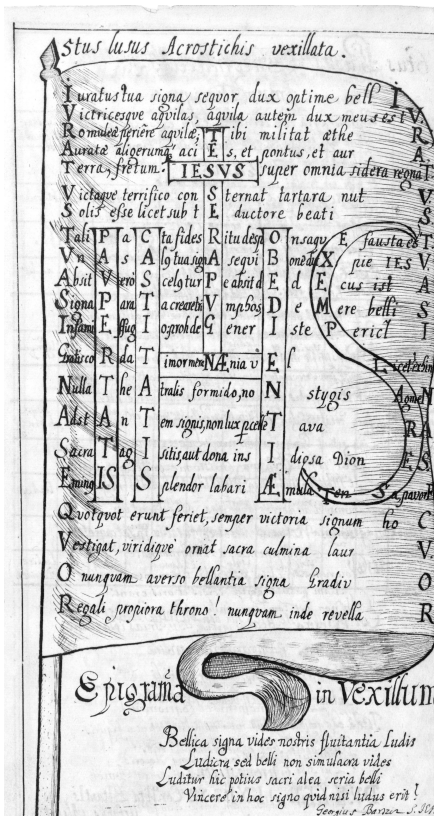 Stus lusus Acrostichis vexillata
Iuratus tua signa sequor dux optime bell I
Victricesque aquilas, aquila autem dux meus est V
Romuleæ periere aquilæ, Tibi militat æthe R
Auratæ aligerumq; aci Es, et pontus, et aur A
Terra, fretum. IESVS super omnia sidera regnat T
Victaque terrifico con Sternat tartara nut V
Solis esse licet sub t E ductore beati S
Tali Pa Cta fides Ritu desp Onsaqu E fausta es T
Vn As
Absit Vero Scelq tur P e absit d E d E cus ist A
Signa Para T
Infami Effug I opprob de G ener I ste P ericl I
Gratisco R da T immormen NÆnia v E l
Nulla The A tralis formido, no N stygis Agme N
Adst An T em signis, non lux T ava RA
Sacra Tag I sitis, aut dona ins I diosa Dion ES
Eming IS Splendor labari Æmula Ten Sa, pavon
Quotquot erunt feriet, semper victoria signum ho C
Vestigat, viridique ornat sacra culmina laur V
O nunquam averso bellantia signa Gradiv O
Regali propiora throno! nunquam inde revella R
Epigrama in Vexillum
Bellica signa vides nostris fluitantia Ludis
Ludicra sed belli non simulacra vides
Luditur hic potius sacri alea seria belli
Vincere in hoc signo quid nisi ludus erit!
Georgius